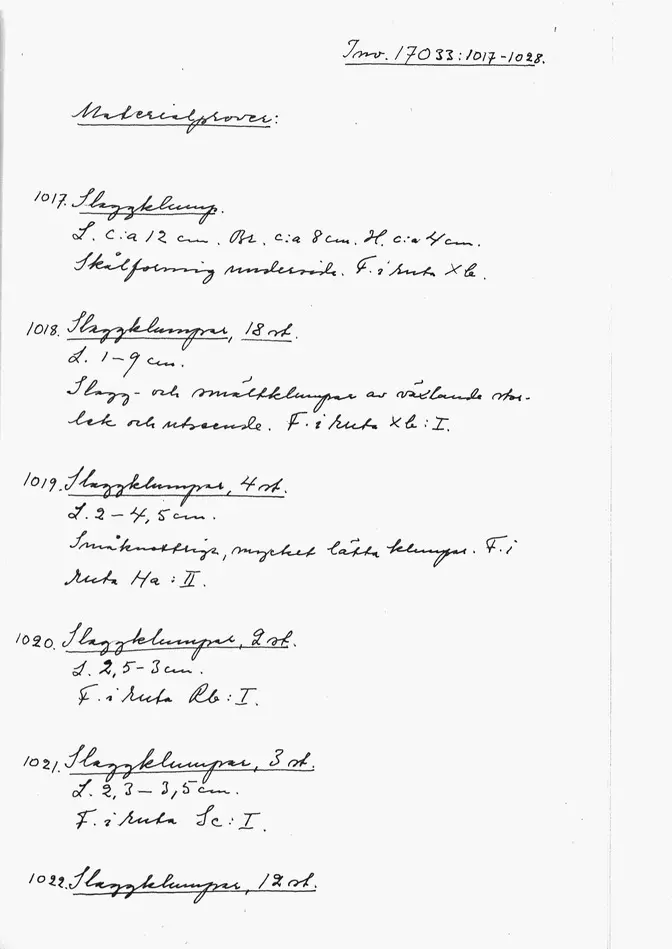 Inv. 17033:1017-1028.
Materialprover:
1017. Slaggklump.
L. c:a 12 cm. Br. c:a 8 cm. H. c:a 4 cm.
Skålformig undersida. F. i ruta Xb.
1018. Slaggklumpar, 18 st.
L. 1-9 cm.
Slagg- och smältklumpar av växlande stor-
lek och utseende. F. i ruta Xb:I.
1019. Slaggklumpar, 4 st.
L. 2-4,5 cm.
Småknottriga, mycket lätta klumpar. F. i
ruta Ha:II.
1020. Slaggklumpar, 2 st.
L. 2,5-3 cm.
F. i ruta Rb:I.
1021. Slaggklumpar, 3 st.
L. 2,3-3,5 cm.
F. i ruta Sc:I.
1022. Slaggklumpar, 12 st.